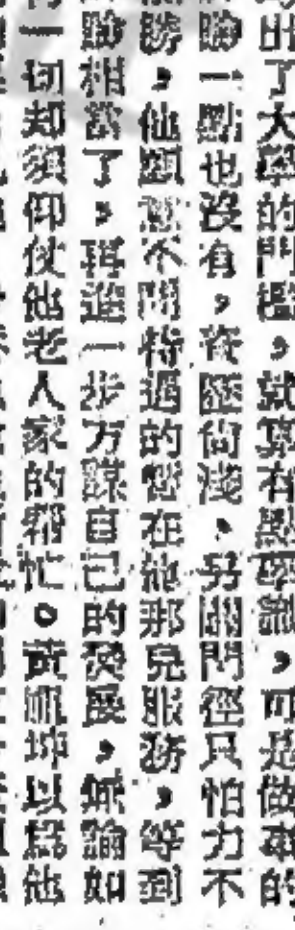 出了大學的門檻，就算有點學識，可是做事的
驗一點也沒有，資歷尚淺，另闢門徑只怕力不
勝，他願意不閒待遇的儘在他那兒服務，等到
驗相當了，再進一步方謀自己的發展，無論如
一切却須仰仗他老人家的幫忙。黃順坤以爲他